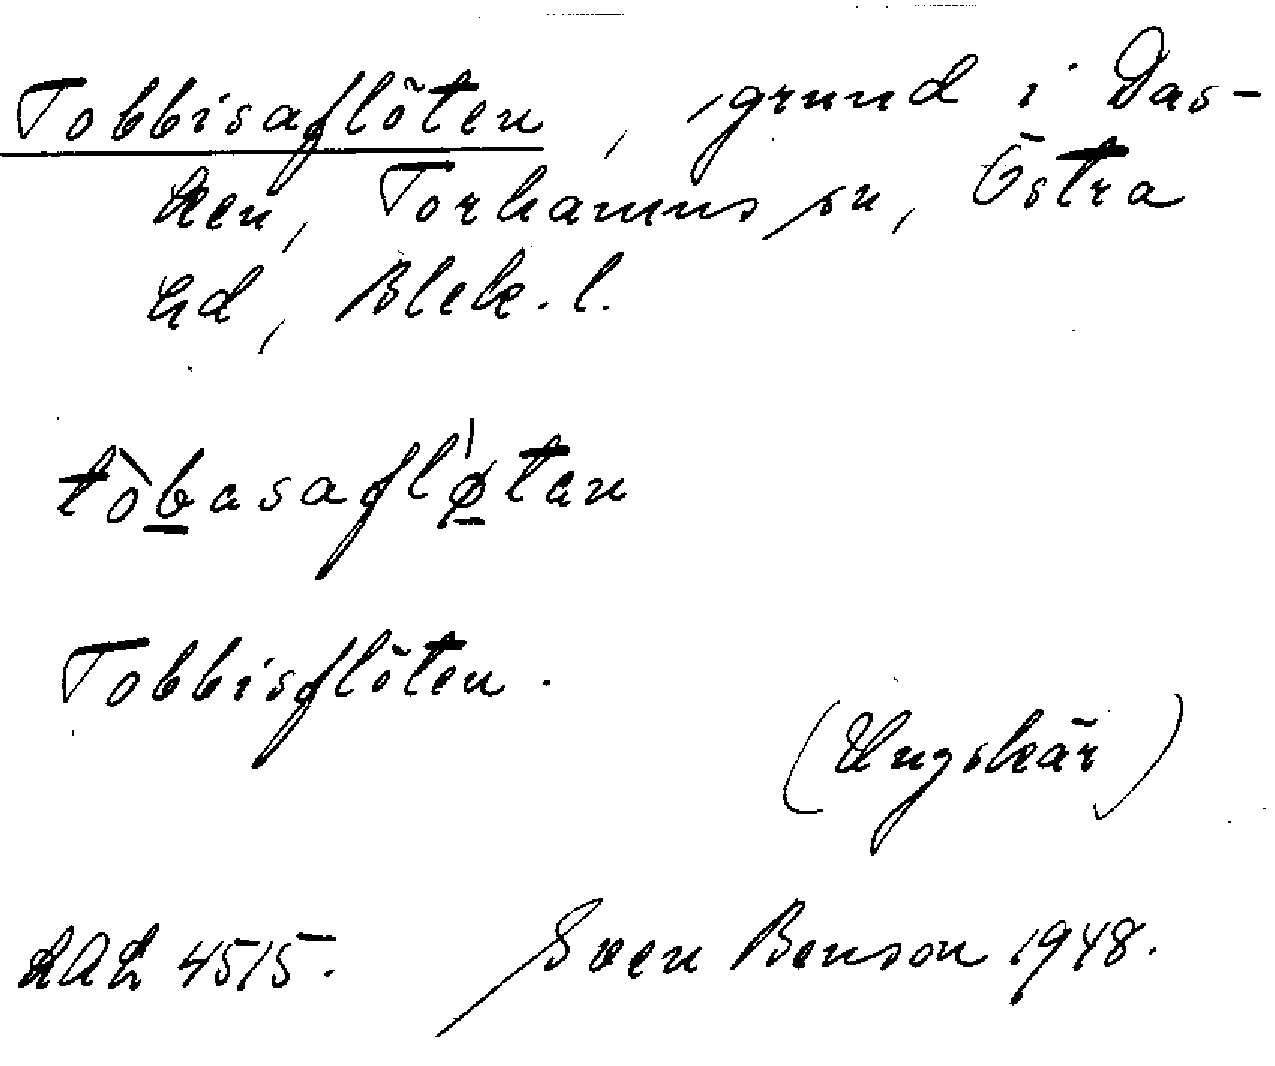 Tobbisaflöten, grund i Das-
ken, Torhamns sn, Östra
hd, Blek. l.
tòbasaflø̀tan
Tobbisflöten.
(Ungskär)
LAL 4515. Sven Benson 1948.